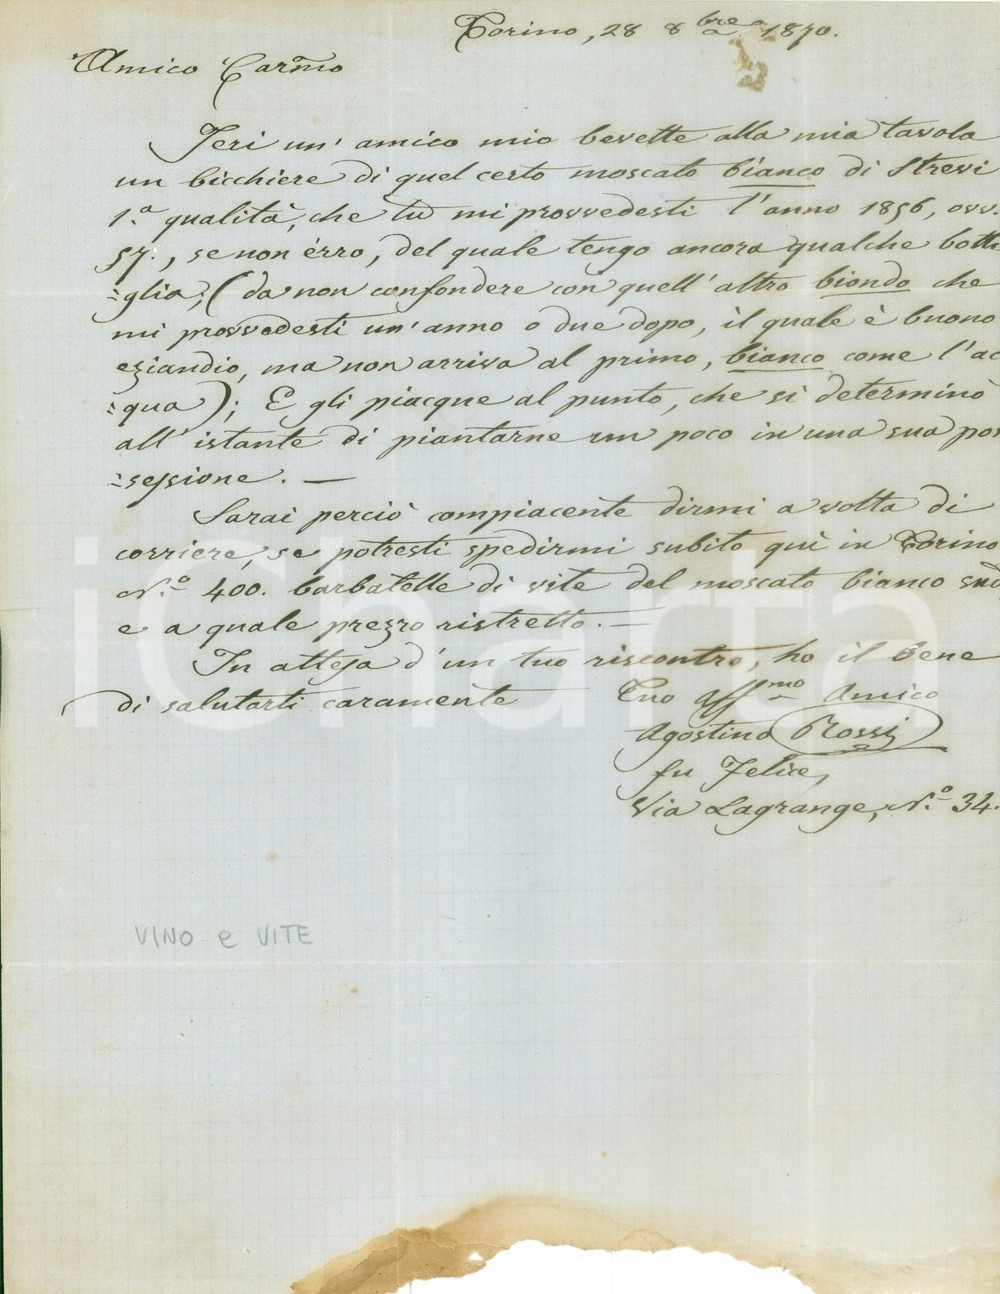 Torino, 28 8bre 1870.
Amico Carmo
Jeri un' amico mio bevette alla mia tavola
un bicchiere di quel certo moscato bianco di Strevi
1.a qualità, che tu mi provvedesti l'anno 1856, ovv.
57., se non érro, del quale tengo ancora qualche botti
=glia; (da non confondere con quell' altro biondo che
mi provvedesti un' anno o due dopo, il quale è buono
eziandio, ma non arriva al primo, bianco come l'ac
=qua); E gli piacque al punto, che si determinò
all' istante di piantarne un poco in una sua pos
=sessione. —
Sarai perciò compiacente dirmi a volta di
corriere, se potresti spedirmi subito quì in Torino
N.o 400. barbatelle di vite del moscato bianco sud
e a quale prezzo ristretto. —
In attesa d'un tuo riscontro, ho il bene
di salutarti caramente
Tuo affmo Amico
Agostino Rossi
fu Felice,
Via Lagrange, N.o 34.
iCharta
VINO e VITE